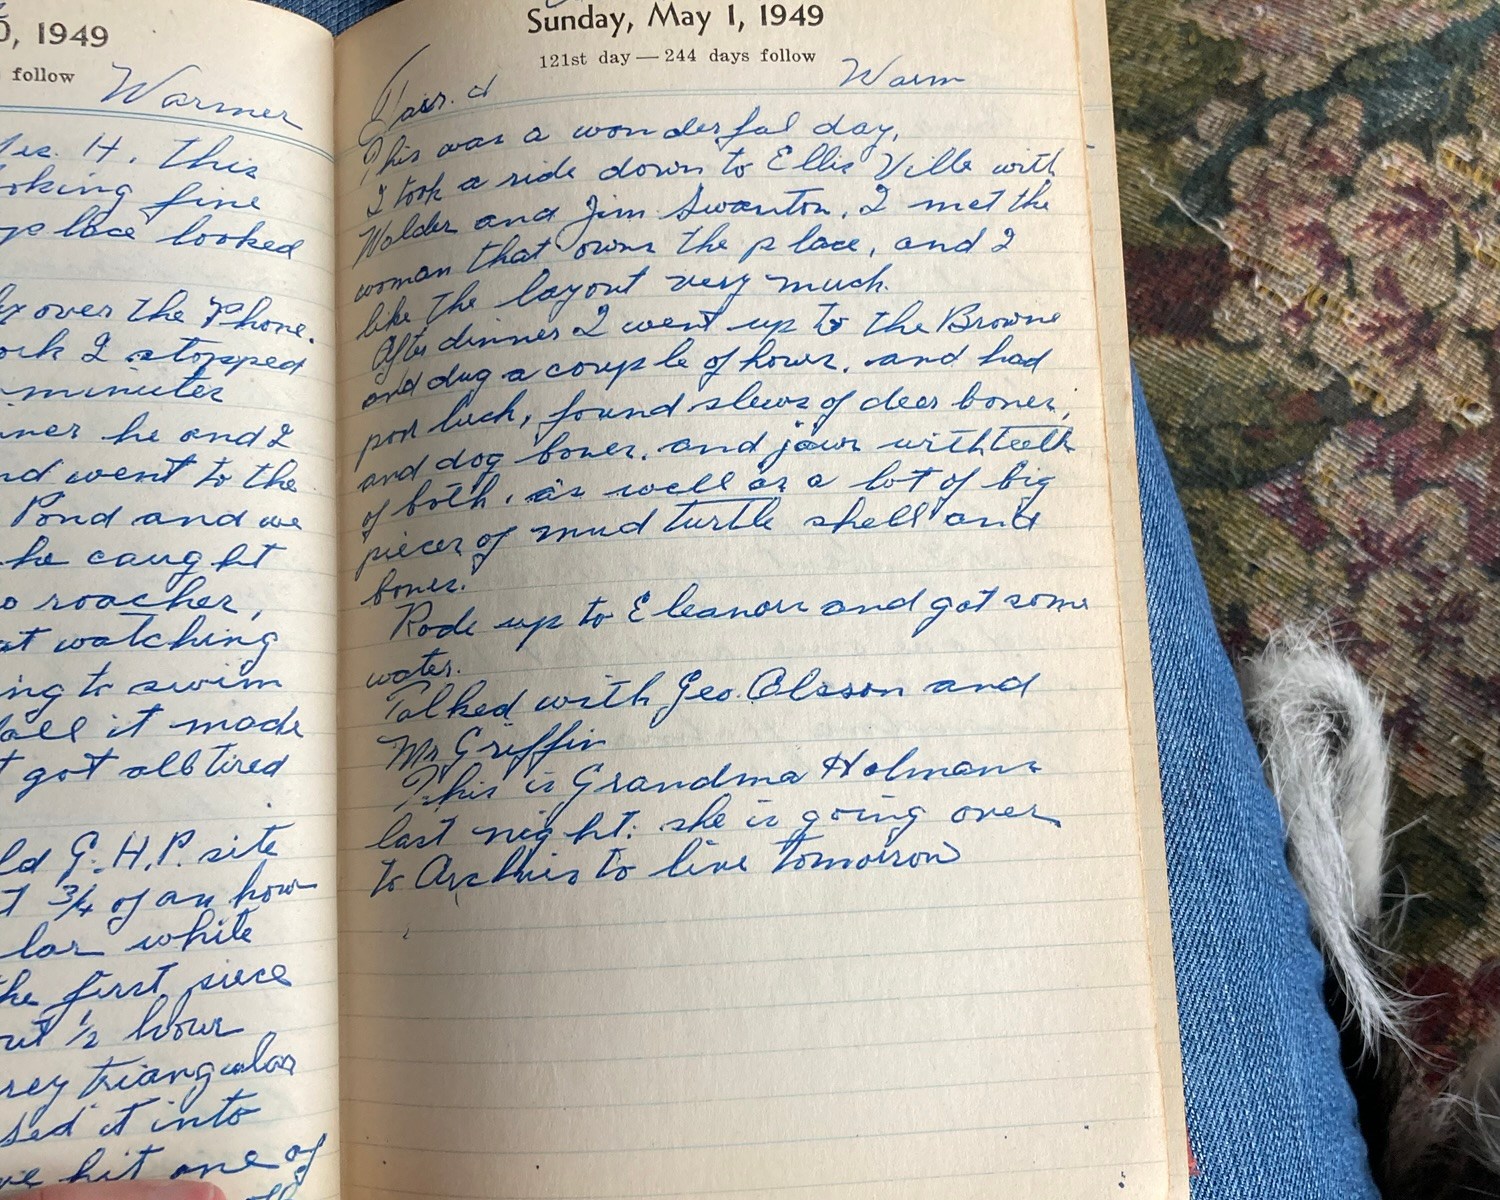 0, 1949
follow
Warmer
H. this
oking fine
place looked
over the Phone.
I stopped
minutes
he and I
nd went to the
Pond and we
he caught
o roaches,
at watching
ing to swim
it made
t got all tired
ld G.H.P. site
3/4 of an hour
lar white
he first piece
ut 1/2 hour
rey triangular
sed it into
ve hit one of
Sunday, May 1, 1949
121st day — 244 days follow
Fair. d
Warm
This was a wonderful day.
I took a ride down to Ellis Ville with
Walder and Jim Swanton. I met the
woman that owns the place, and I
like the layout very much.
After dinner I went up to the Browne
and dug a couple of hours. and had
poor luck, found slews of deer bones,
and dog bones. and jaws with teeth
of both. as well as a lot of big
pieces of mud turtle shell and
bones.
Rode up to Eleanors and got some
water.
Talked with Geo. Olsson and
Mr Griffin
This is Grandma Holmans
last night. she is going over
to Archies to live tomorrow